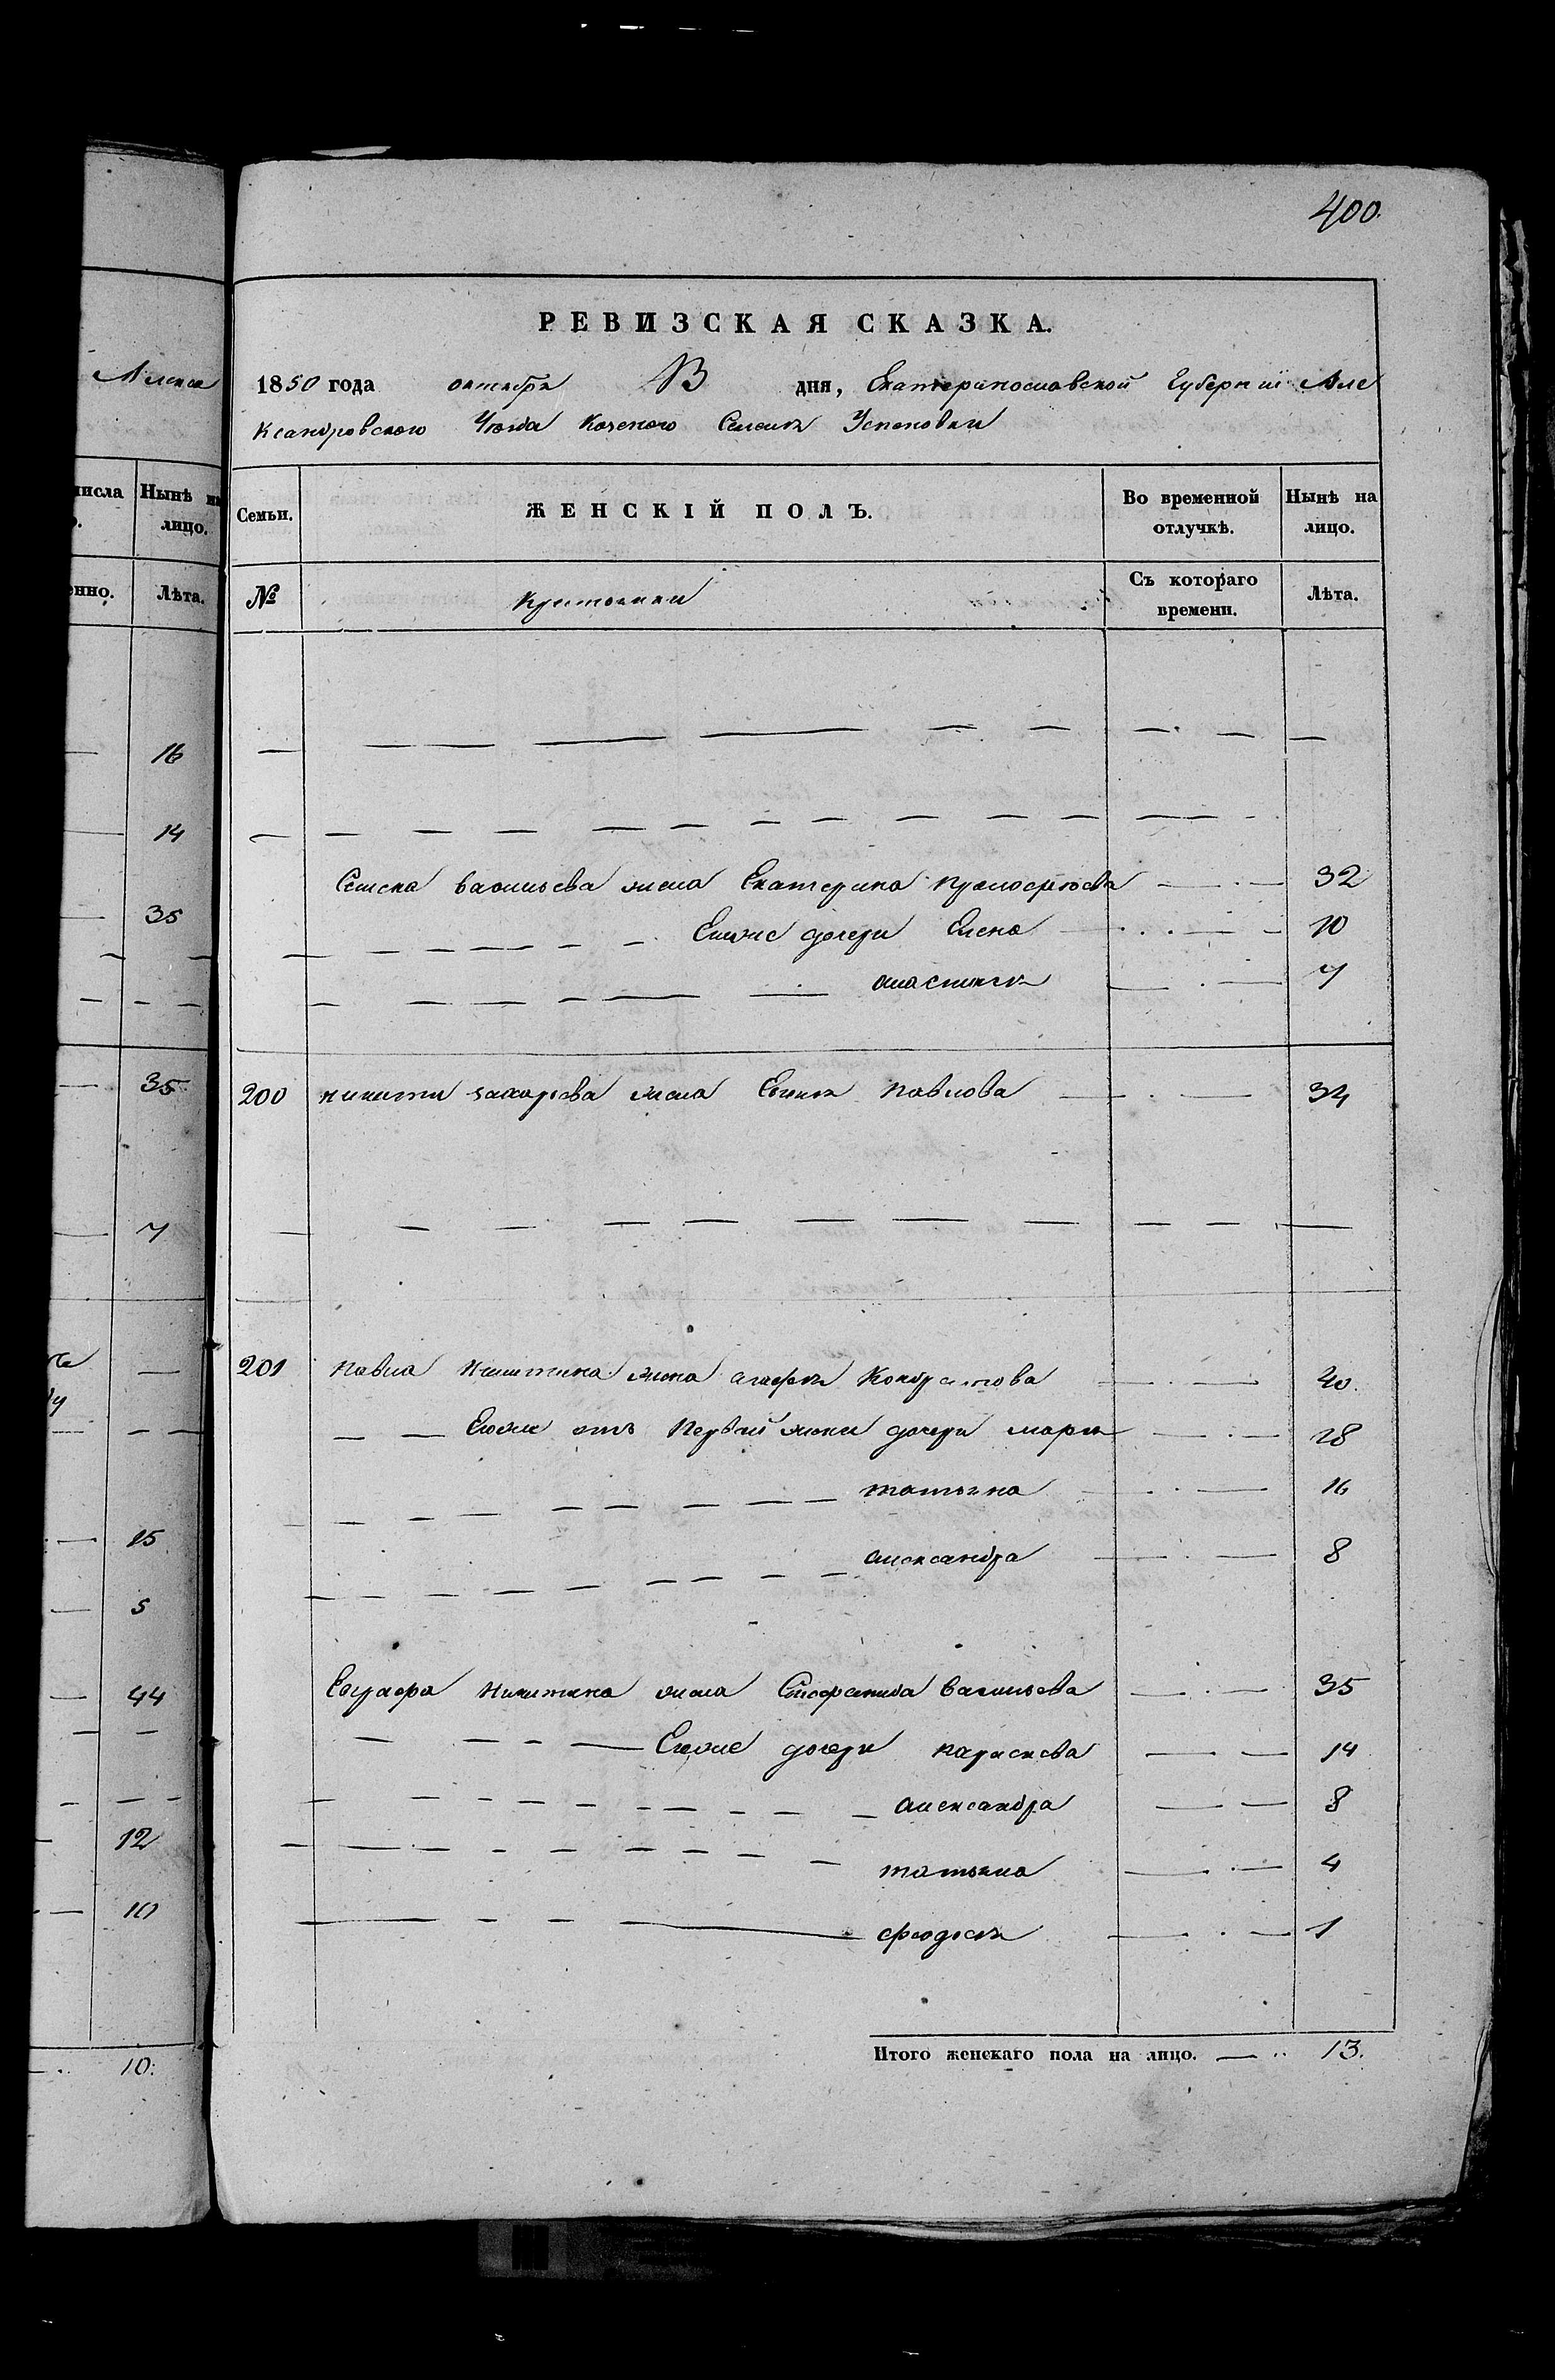 400.
РЕВИЗСКАЯ СКАЗКА.
1850 года октября 13 дня, Екатеринославской Губернии Але
ксандровского Уезда Казеного Селения Успеновки
Семьи. ЖЕНСКІЙ ПОЛЪ. Во временной отлучкѣ. Нынѣ на лицо.
№ Крестьянки Съ котораго времени. Лѣта.
Семена васильева жена Екатерина 32
Елена 10
Анастасия 7
200 никиты захарьева жена Павлова 34
201 Павла Никитина жена агафия Кондратова 40.
Еговые отъ Первой жены дочери мария 28
татьяна 16
александра 8
Никитина жена Стефанида васильева 35
Еговые дочери 14
александра 8
татьяна 4
феодосия 1
Итого женскаго пола на лицо. 13.
Алекса
числа Нынѣ на лицо.
енно. Лѣта.
16
14
35
35
7
15
5
44
12
10
10.